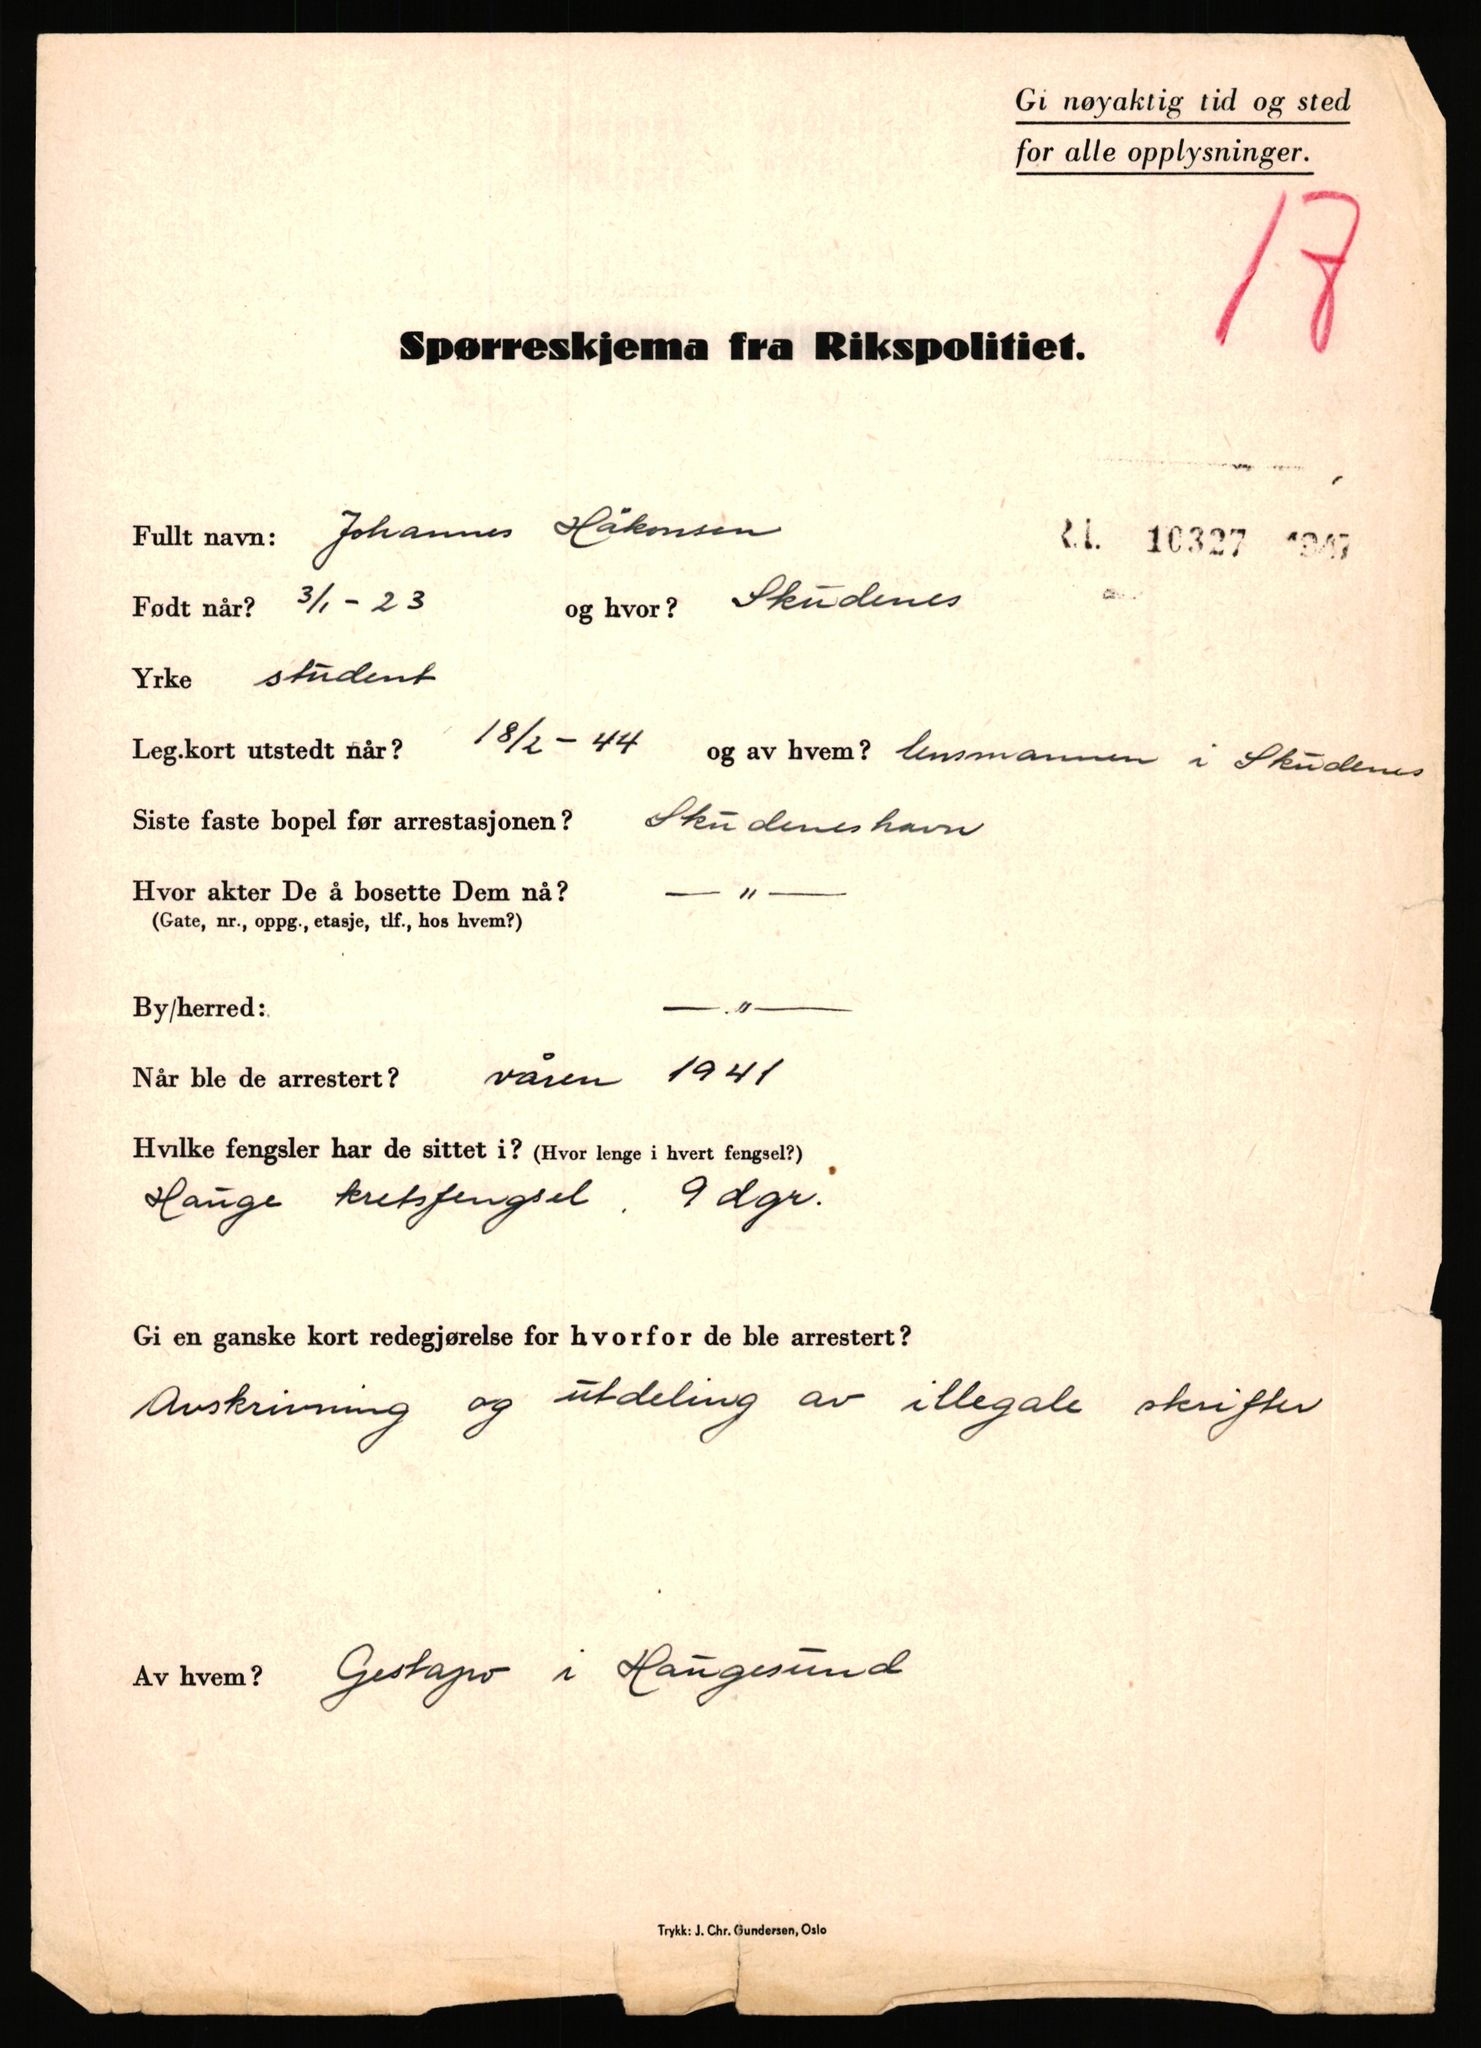 Gi nøyaktig tid og sted
for alle opplysninger.
17
Spørreskjema fra Rikspolitiet.
Fullt navn: Johannes Håkonsen
R.I. 10327 1947
Født når? 3/1 - 23 og hvor? Skudenes
Yrke student
Leg.kort utstedt når? 18/2 - 44 og av hvem? lensmannen i Skudenes
Siste faste bopel før arrestasjonen? Skudeneshavn
Hvor akter De å bosette Dem nå? — " —
(Gate, nr., oppg., etasje, tlf., hos hvem?)
By/herred: — " —
Når ble de arrestert? våren 1941
Hvilke fengsler har de sittet i? (Hvor lenge i hvert fengsel?)
Hauge kretsfengsel. 9 dgr.
Gi en ganske kort redegjørelse for hvorfor de ble arrestert?
Avskrivning og utdeling av illegale skrifter
Av hvem? Gestapo i Haugesund
Trykk: J. Chr. Gundersen, Oslo